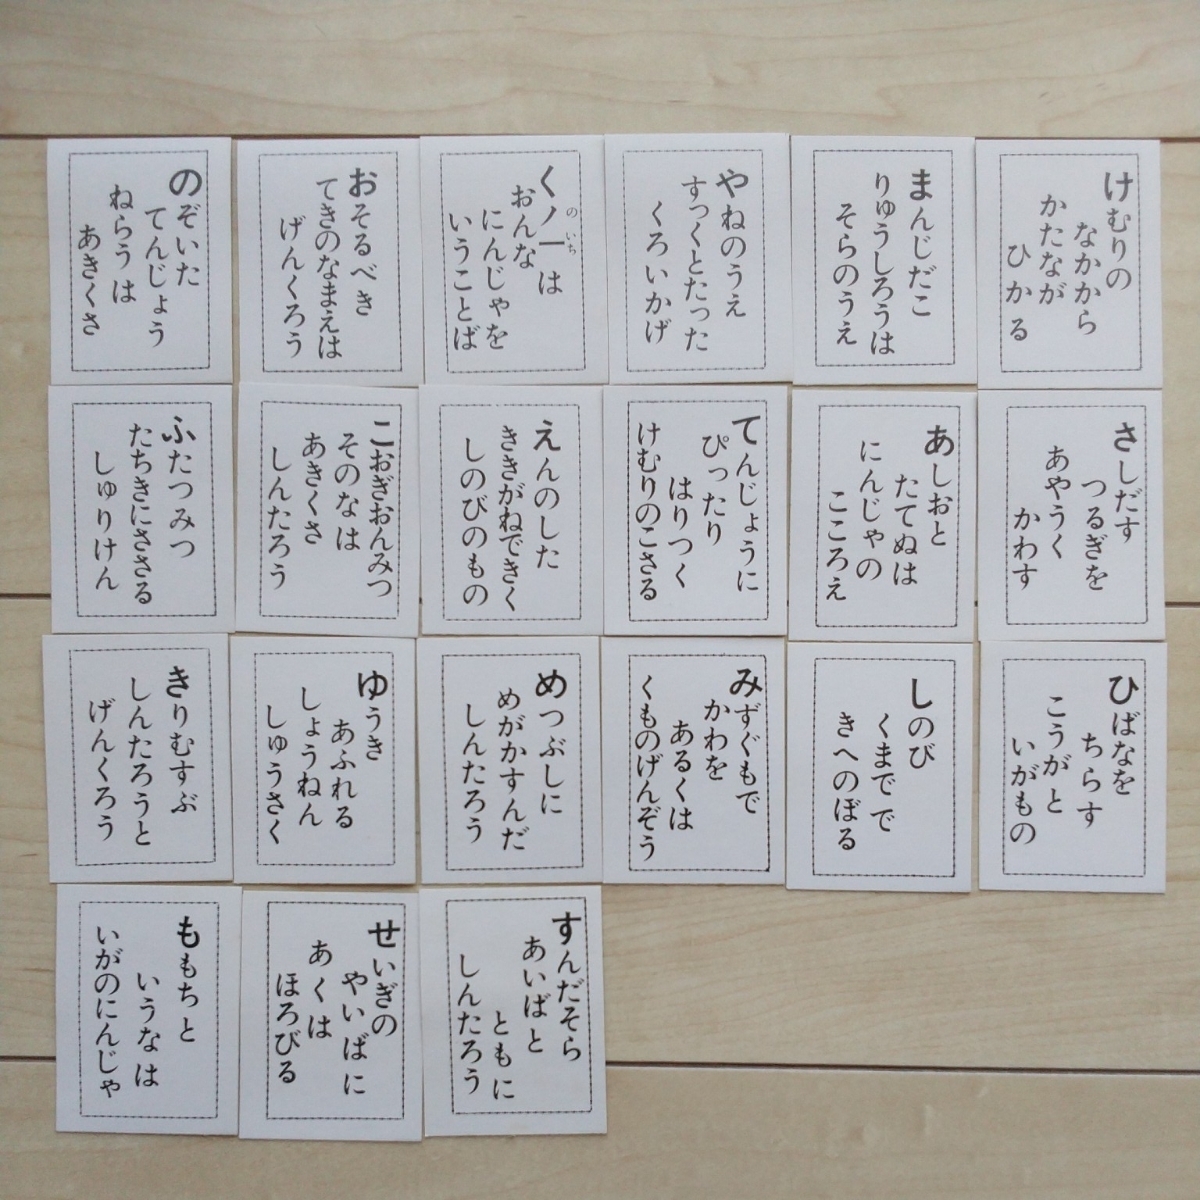 のぞいた
てんじょう
ねらうは
あきくさ
おそるべき
てきのなまえは
げんくろう
くノ一は
のいち
おんな
にんじゃを
いうことば
やねのうえ
すっくとたった
くろいかげ
まんじだこ
りゅうしろうは
そらのうえ
けむりの
なかから
かたなが
ひかる
ふたつみつ
たちきにささる
しゅりけん
こおぎおんみつ
そのなは
あきくさ
しんたろう
えんのした
ききがねできく
しのびのもの
てんじょうに
ぴったり
はりつく
けむりのこさる
あしおと
たてぬは
にんじゃの
こころえ
さしだす
つるぎを
あやうく
かわす
きりむすぶ
しんたろうと
げんくろう
ゆうき
あふれる
しょうねん
しゅうさく
めつぶしに
めがかすんだ
しんたろう
みずぐもで
かわを
あるくは
くものげんぞう
しのび
くまでで
きへのぼる
ひばなを
ちらす
こうがと
いがもの
ももちと
いうなは
いがのにんじゃ
せいぎの
やいばに
あくは
ほろびる
すんだそら
あいばと
ともに
しんたろう